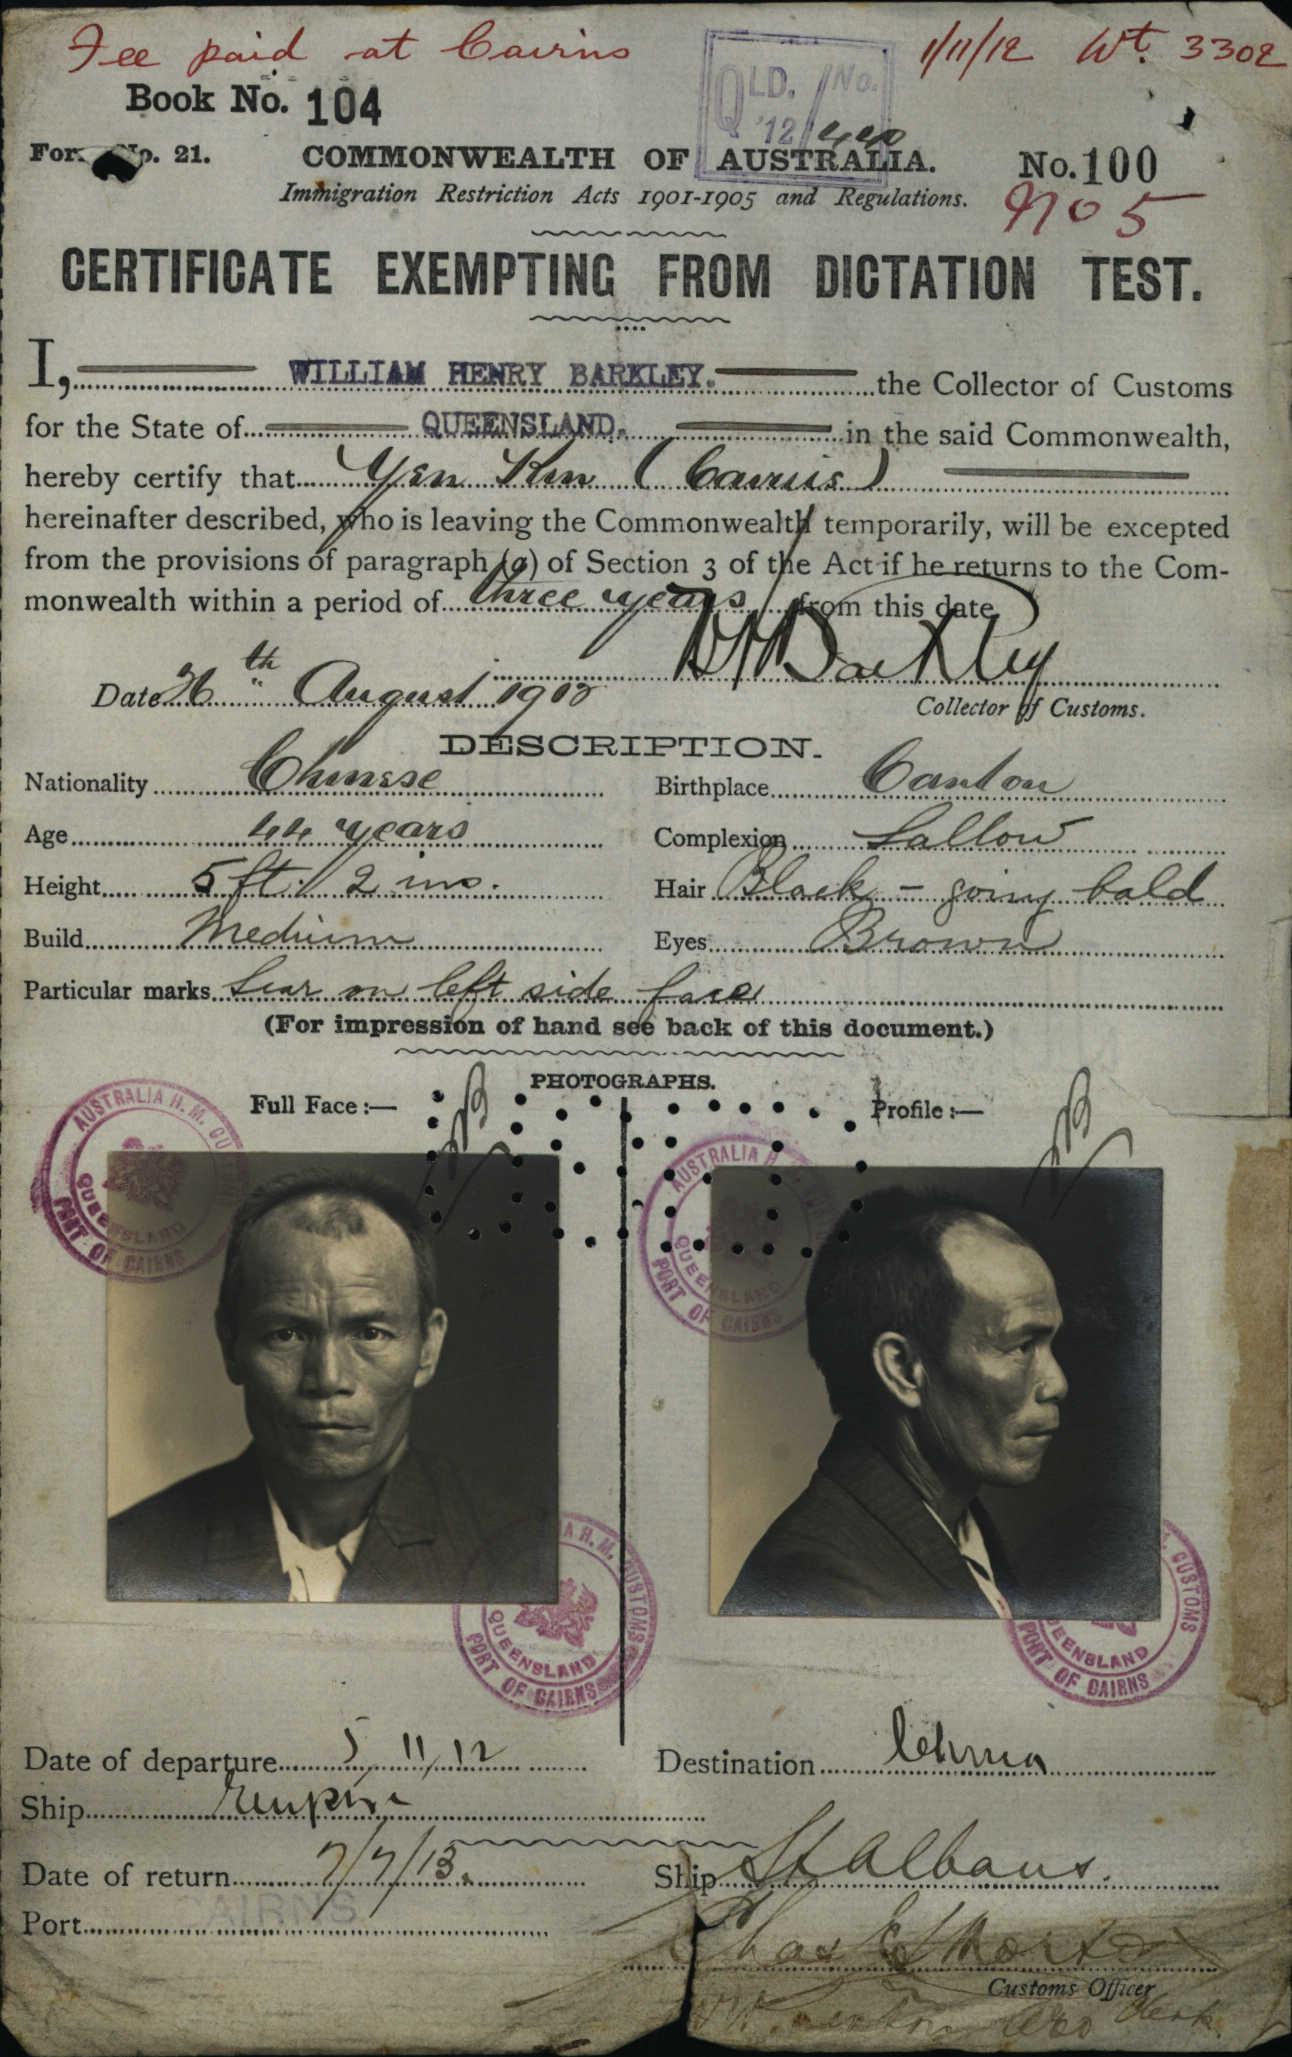 Fee paid at Cairns 1/11/12 Wt. 3302
Book No. 104
QLD. No.
'12/440
Form No. 21. COMMONWEALTH OF AUSTRALIA. No. 100
Immigration Restriction Acts 1901-1905 and Regulations. No 5
CERTIFICATE EXEMPTING FROM DICTATION TEST.
I, WILLIAM HENRY BARKLEY. the Collector of Customs
for the State of QUEENSLAND. in the said Commonwealth,
hereby certify that Yen Kin (Cairns)
hereinafter described, who is leaving the Commonwealth temporarily, will be excepted
from the provisions of paragraph (a) of Section 3 of the Act if he returns to the Com-
monwealth within a period of three years from this date
WHBarkley
Date 26th August 1912 Collector of Customs.
DESCRIPTION.
Nationality Chinese Birthplace Canton
Age 44 years Complexion Sallow
Height 5 ft. 2 ins. Hair Black - going bald
Build Medium Eyes Brown
Particular marks Scar on left side face
(For impression of hand see back of this document.)
PHOTOGRAPHS.
Full Face :— Profile :—
AUSTRALIA H. M. CUSTOMS QUEENSLAND PORT OF CAIRNS
AUSTRALIA H. M. CUSTOMS QUEENSLAND PORT OF CAIRNS
A H. M. CUSTOMS QUEENSLAND PORT OF CAIRNS
CUSTOMS QUEENSLAND PORT OF CAIRNS
Date of departure 5 11/12 Destination China
Ship Empire
Date of return 7/7/13. Ship St Albans.
Port CAIRNS
Chas
Customs Officer
Clerk.